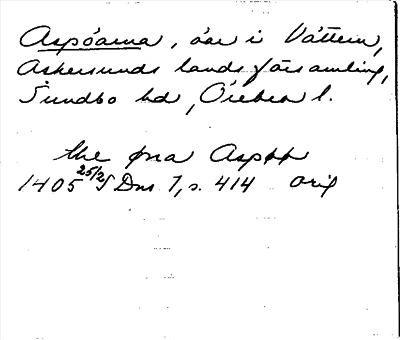 Aspöarna, öar i Vättern,
Askersunds landsförsamling,
Sundbo hd, Örebro l.
the
1405 25/2 Dns 1, s. 414 orig